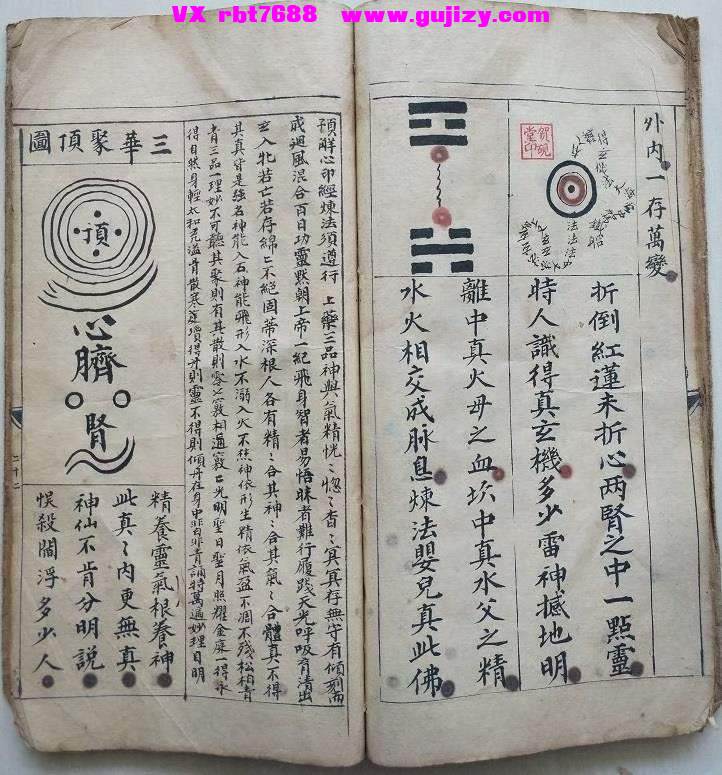 VX rbt7688 www.gujizy.com
外内一存萬變
賀硯堂印
法法法
折倒紅蓮未折心两腎之中一點靈
時人識得真玄機多少雷神撼地明
離中真火母之血坎中真水父之精
水火相交成脉息煉法嬰兒真此佛
預解心印經煉法須遵行 上藥三品神與氣精恍〻惚〻杳〻冥〻真存無守有傾刻而
成迴風混合百日功靈黙朝上帝一紀飛身智者易悟昧者難行履踐天光呼吸育清出
玄入牝若亡若存綿〻不絕固蒂深根人各有精〻合其神〻合其氣〻合體真不得
其真皆是強名神能入石神能飛形入水不溺入火不焦神依形生精依氣盈不凋不残松柏青
青三品一理妙不可聽其聚則有其散則零七竅相通竅〻光明聖日聖月照耀金庭一得永
得自然身輕太和充溢骨散寒瓊得丹則靈不得則傾丹在身中非白非青誦持萬遍妙理自明
三華聚頂圖
頂
心
臍
腎
二十二
精養靈氣根養神
此真〻内更無真
神仙不肯分明說
悮殺閻浮多少人